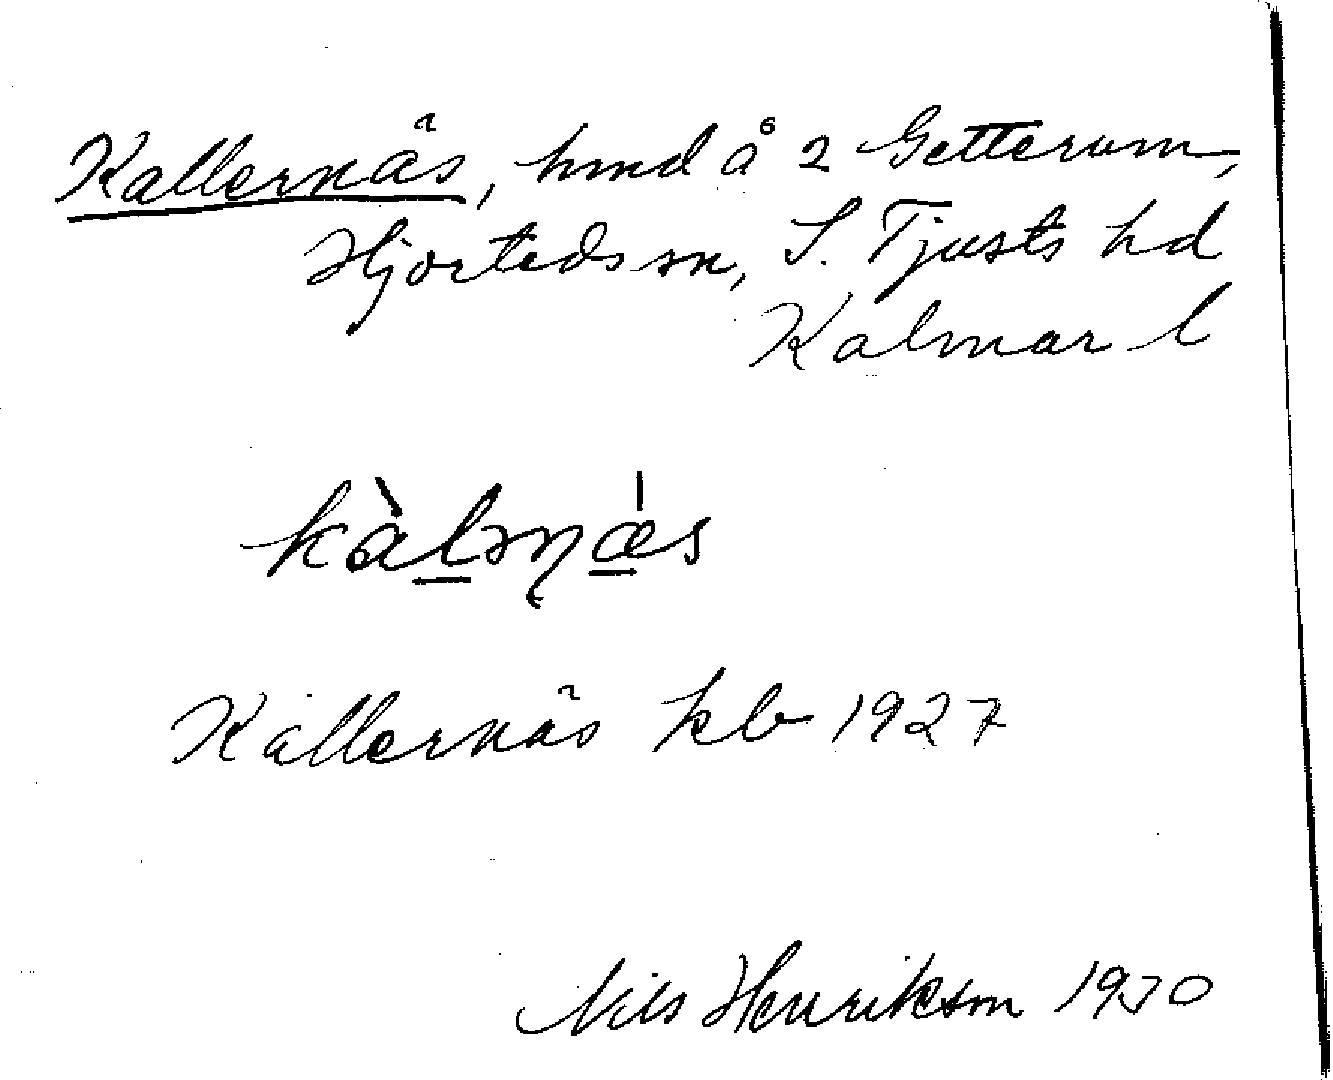 Kallernäs, hmd å 2 Getterum,
Hjorteds sn, S. Tjusts hd
Kalmar l
kàlənæs
Kallernäs kb 1927
Nils Henrikson 1930